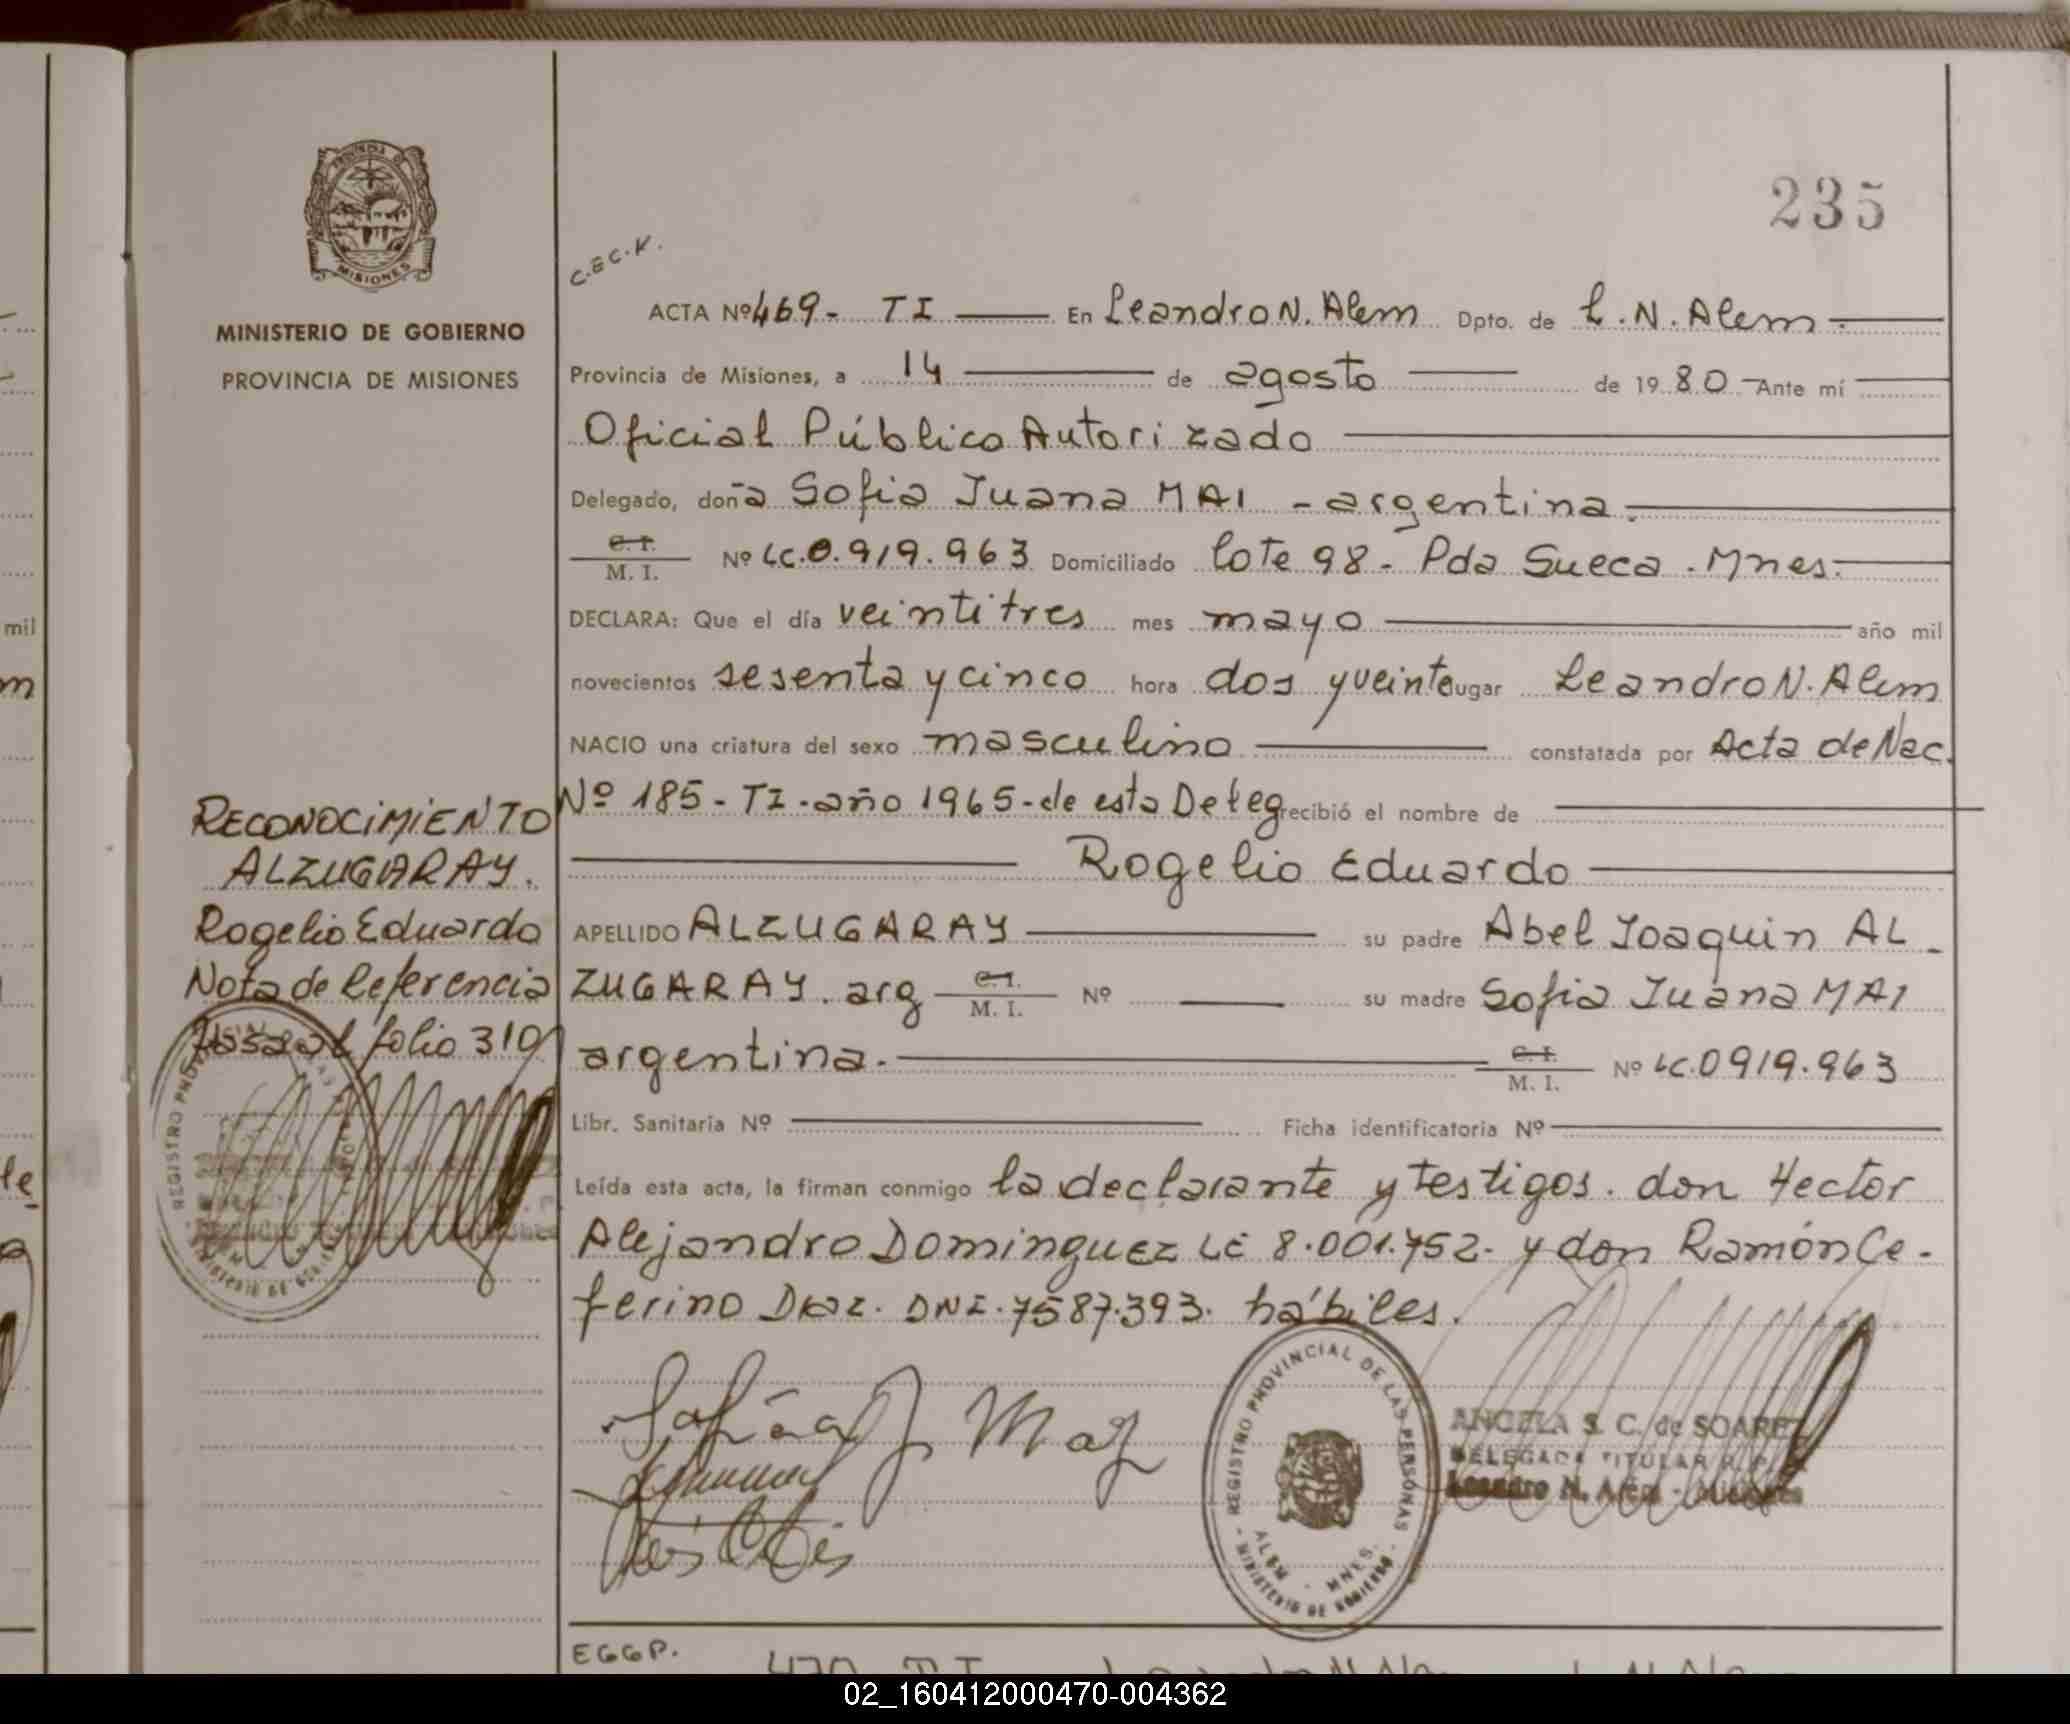 235
C.E.C.K.
PROVINCIA DE
MISIONES
MINISTERIO DE GOBIERNO
PROVINCIA DE MISIONES
ACTA Nº 469- TI En Leandro N. Alem Dpto. de L. N. Alem.
Provincia de Misiones, a 14 de agosto de 1980 Ante mí
Oficial Público Autorizado
Delegado, doña Sofia Juana MAI - argentina.
C. I. M. I. Nº LC.0.919.963 Domiciliado lote 98 - Pda Sueca . Mnes.
DECLARA: Que el día veintitres mes mayo año mil
novecientos sesenta y cinco hora dos y veinte lugar Leandro N. Alem
NACIO una criatura del sexo masculino constatada por Acta de Nac.
Nº 185 - TI - año 1965 - de esta Deleg recibió el nombre de
Rogelio Eduardo
APELLIDO ALZUGARAY su padre Abel Joaquin AL-
ZUGARAY. arg C. I. M. I. Nº su madre Sofia Juana MAI
argentina. C. I. M. I. Nº LC.0919.963
Libr. Sanitaria Nº Ficha identificatoria Nº
Leída esta acta, la firman conmigo la declarante y testigos. don Hector
Alejandro Dominguez LE 8.001.752- y don Ramón Ce-
ferino Diaz. DNI. 7587.393. hábiles.
RECONOCIMIENTO
ALZUGARAY.
Rogelio Eduardo
Nota de Referencia
Pasa al folio 310
REGISTRO PROV
MINISTERIO DE GOBIERNO
Sofia J Mai
REGISTRO PROVINCIAL DE LAS PERSONAS
ALEM - MNES.
MINISTERIO DE GOBIERNO
ANGELA S. C. de SOAREZ
DELEGADA TITULAR R. P.
Leandro N. Alem - Misiones
EGGP.
470 TI Leandro N. Alem L. N. Alem
mil
m
le
02_160412000470-004362